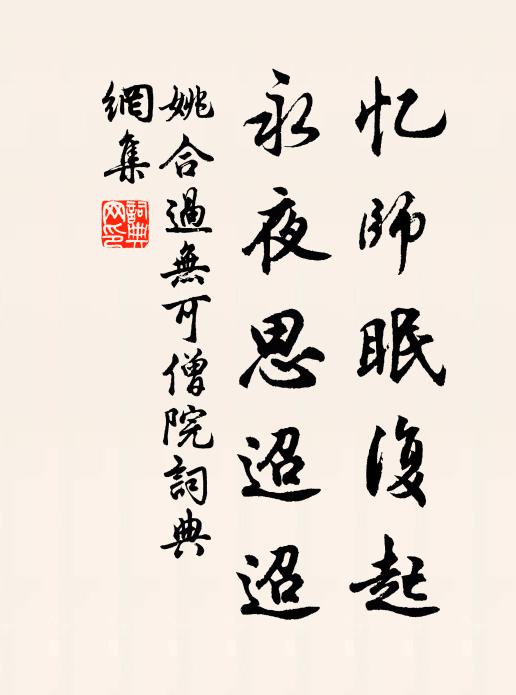 忆师眠復起
永夜思迢迢
姚合過無可僧院詞典
網集
詞典網印